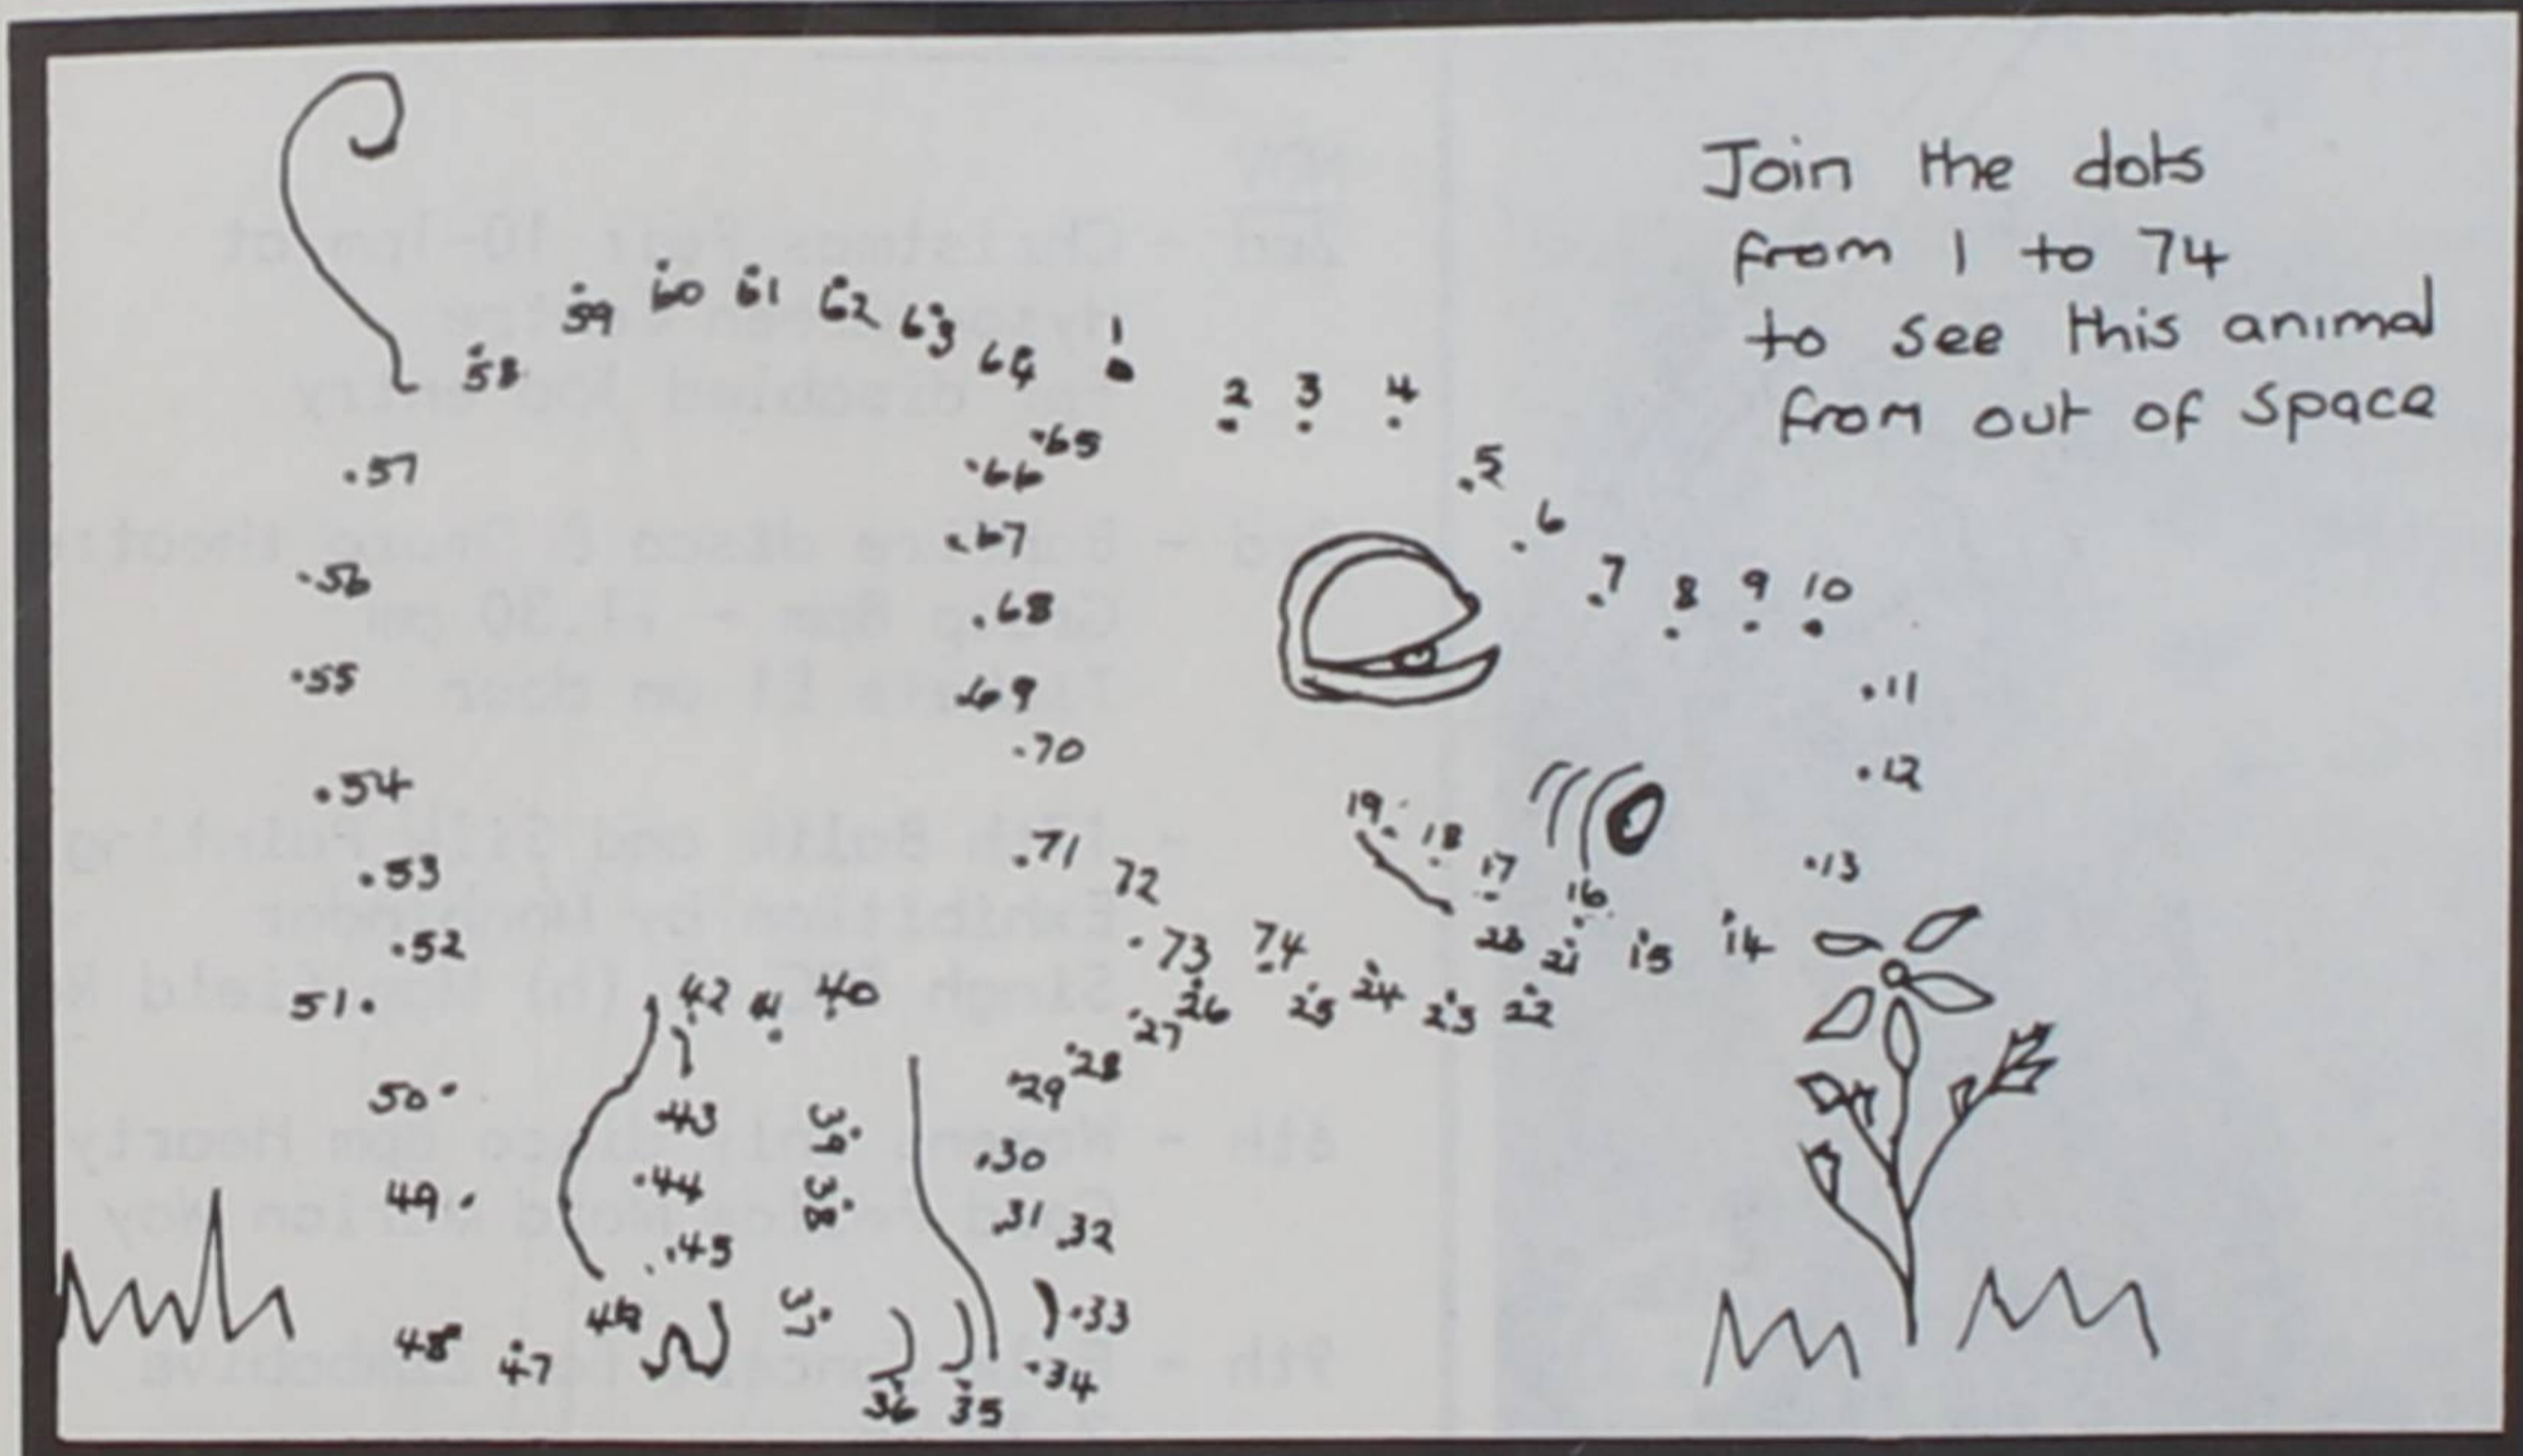 Join the dots
from 1 to 74
to see this animal
from out of space
1
2 3 4
5
6
7 8 9 10
11
12
13
14
15
16
17
18
19
21
22
23
24
25
26
27
28
29
30
31
32
33
34
35
36
37
38
39
40
41
42
43
44
45
47
48
49
50
51
52
53
54
55
56
57
58
59
60
61
62
63
64
65
66
67
68
69
70
71
72
73
74